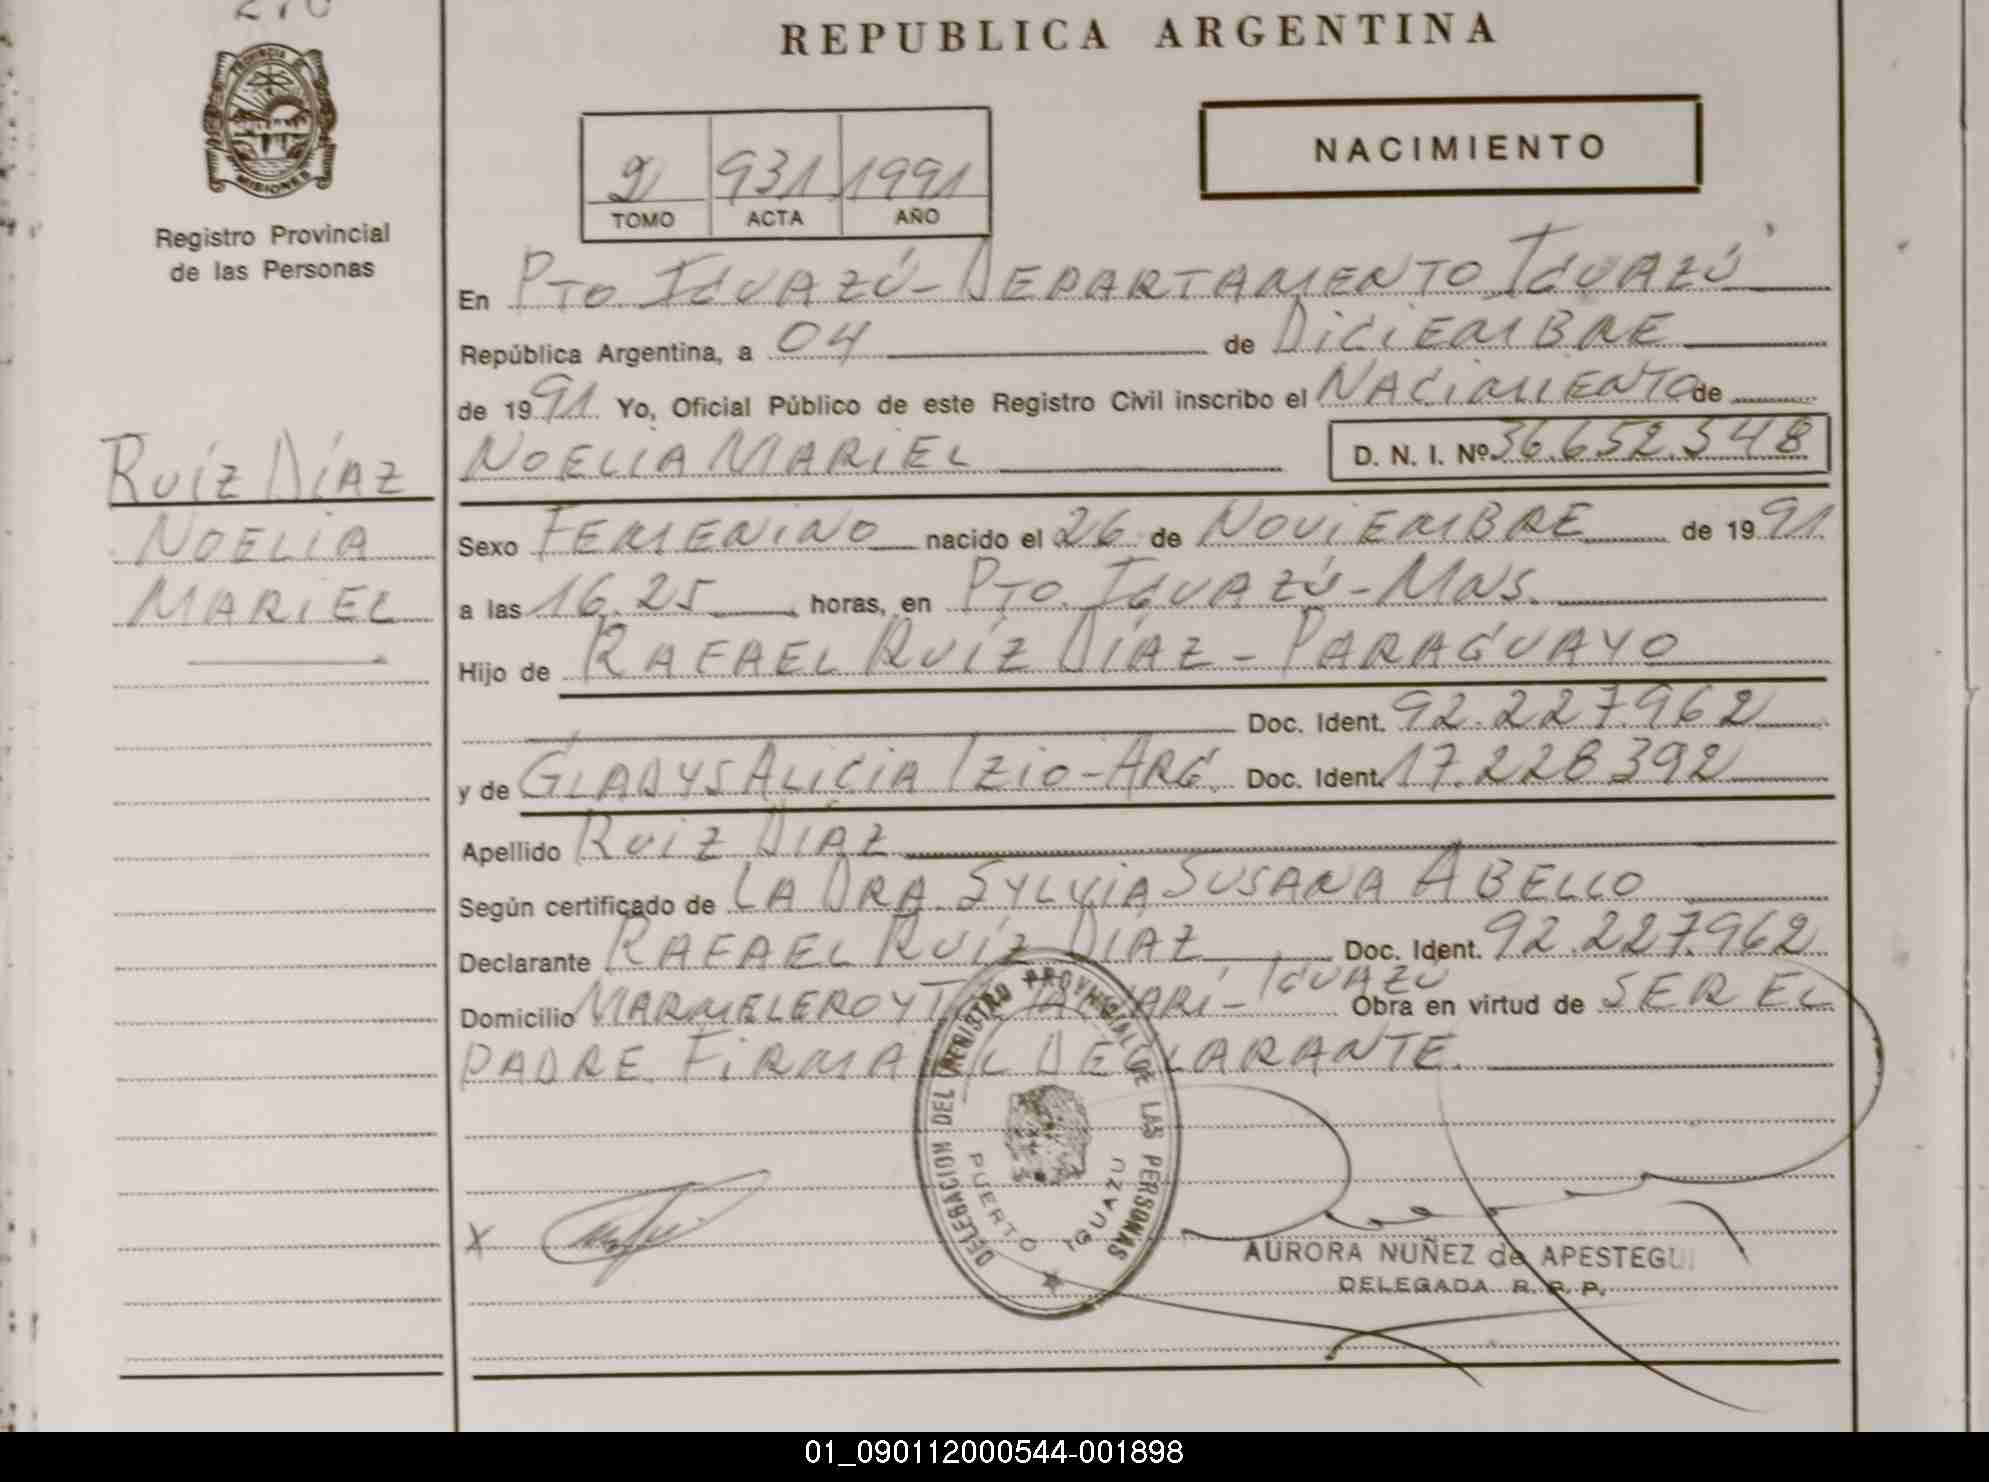 REPUBLICA ARGENTINA
PROVINCIA DE
MISIONES
Registro Provincial
de las Personas
NACIMIENTO
2 931 1991
TOMO ACTA AÑO
En PTO. IGUAZÚ - DEPARTAMENTO IGUAZÚ
República Argentina, a 04 de DICIEMBRE
de 1991 Yo, Oficial Público de este Registro Civil inscribo el NACIMIENTO de
NOELIA MARIEL D. N. I. Nº 36.652.548
RUÍZ DÍAZ
NOELIA
MARIEL
Sexo FEMENINO nacido el 26 de NOVIEMBRE de 1991
a las 16.25 horas, en PTO. IGUAZÚ - MNS.
Hijo de RAFAEL RUÍZ DÍAZ - PARAGUAYO
Doc. Ident. 92.227.962
y de GLADYS ALICIA IZIO - ARG. Doc. Ident. 17.228.392
Apellido RUIZ DÍAZ
Según certificado de LA DRA. SYLVIA SUSANA ABELLO
Declarante RAFAEL RUÍZ DIAZ Doc. Ident. 92.227.962
Domicilio MARMELERO Y - IGUAZÚ Obra en virtud de SER EL
PADRE. FIRMA EL DECLARANTE.
DELEGACION DEL REGISTRO PROVINCIAL DE LAS PERSONAS
PUERTO IGUAZU
X
AURORA NUÑEZ de APESTEGUI
DELEGADA R. R. P.
01_090112000544-001898